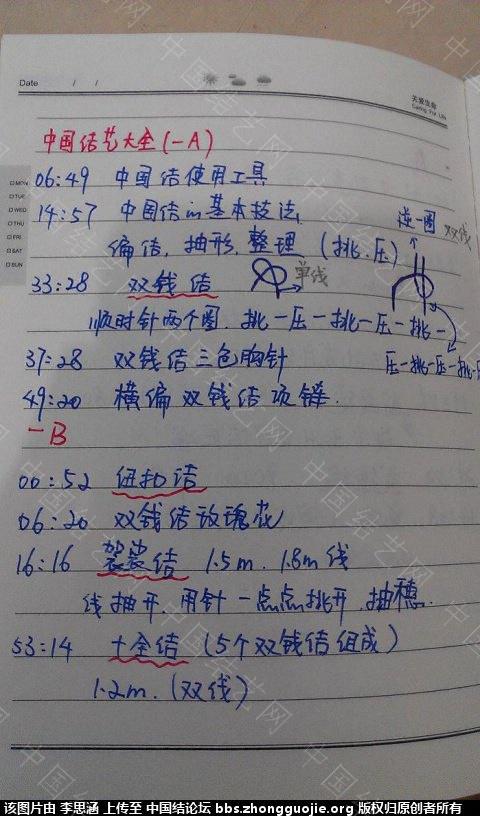 Date / /
关爱生命
Caring For Life
中国结艺大全(一A)
MON
TUE
WED
THU
FRI
SAT
SUN
06:49 中国结使用工具
14:57 中国结的基本技法
编结、抽形、整理(挑、压)
逆一圈 双线
33:28 双钱结
单线
顺时针两个圈、挑一压一挑一压一挑一
压一挑一压一挑一压
37:28 双钱结三色胸针
49:20 横编双钱结项链.
一B
00:52 纽扣结
06:20 双钱结玫瑰花
16:16 袈裟结 1.5m、1.8m线
线抽开、用针一点点挑开、抽穗.
53:14 十全结(5个双钱结组成)
1.2m.(双线)
中国结艺网
该图片由 李思涵 上传至 中国结论坛 bbs.zhongguojie.org 版权归原创者所有